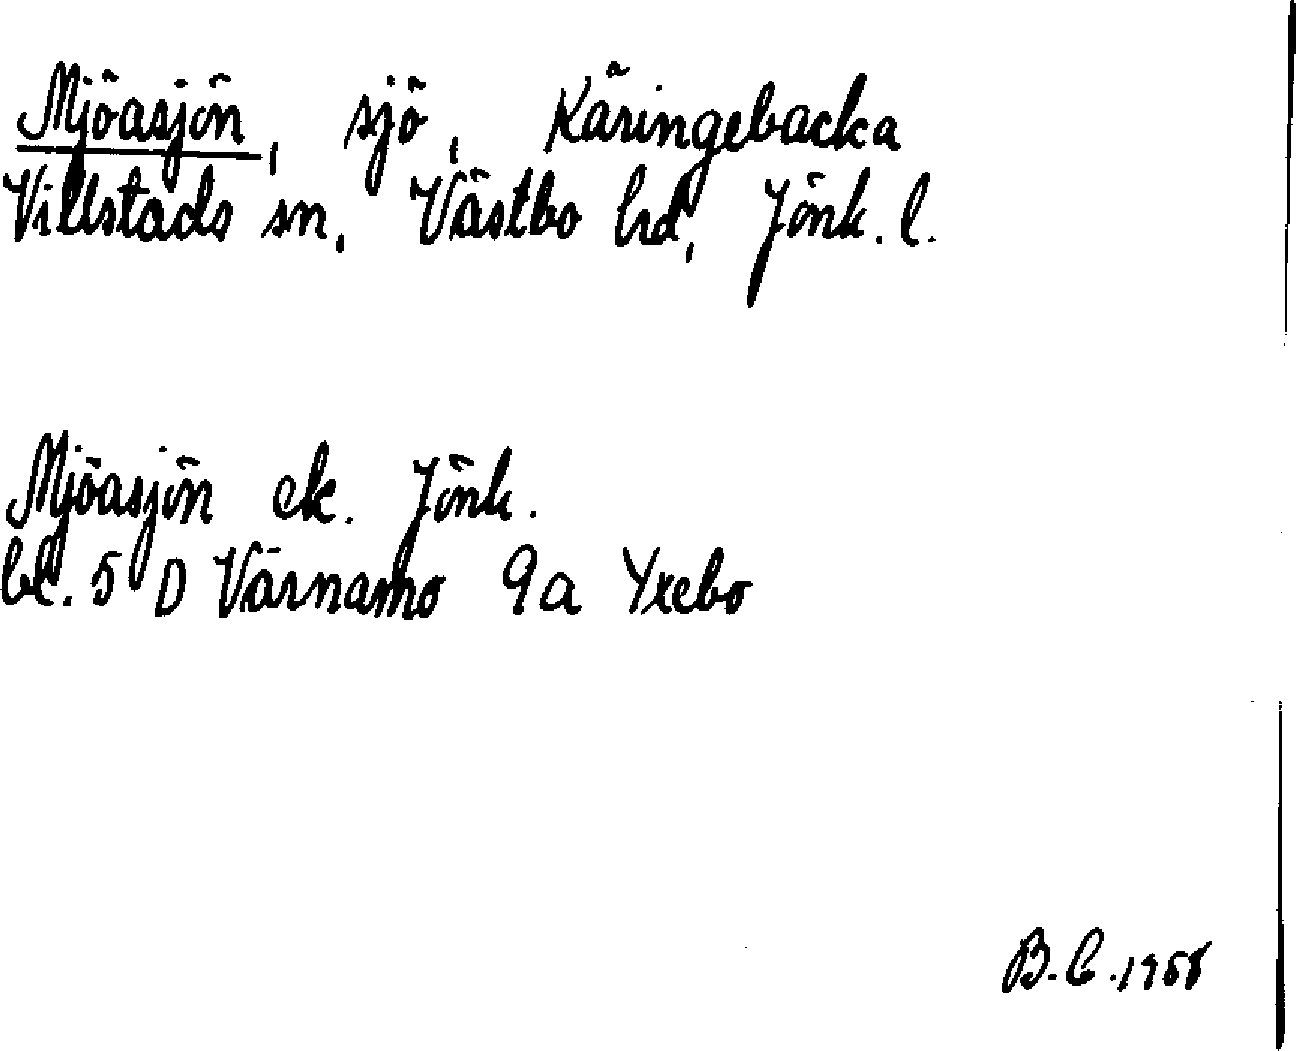 Mjöasjön, sjö, Käringebacka
Villstads sn, Västbo hd, Jönk. l.
Mjöasjön ek. Jönk.
bl. 5 D Värnamo 9a Yxebo
B.C. 1958